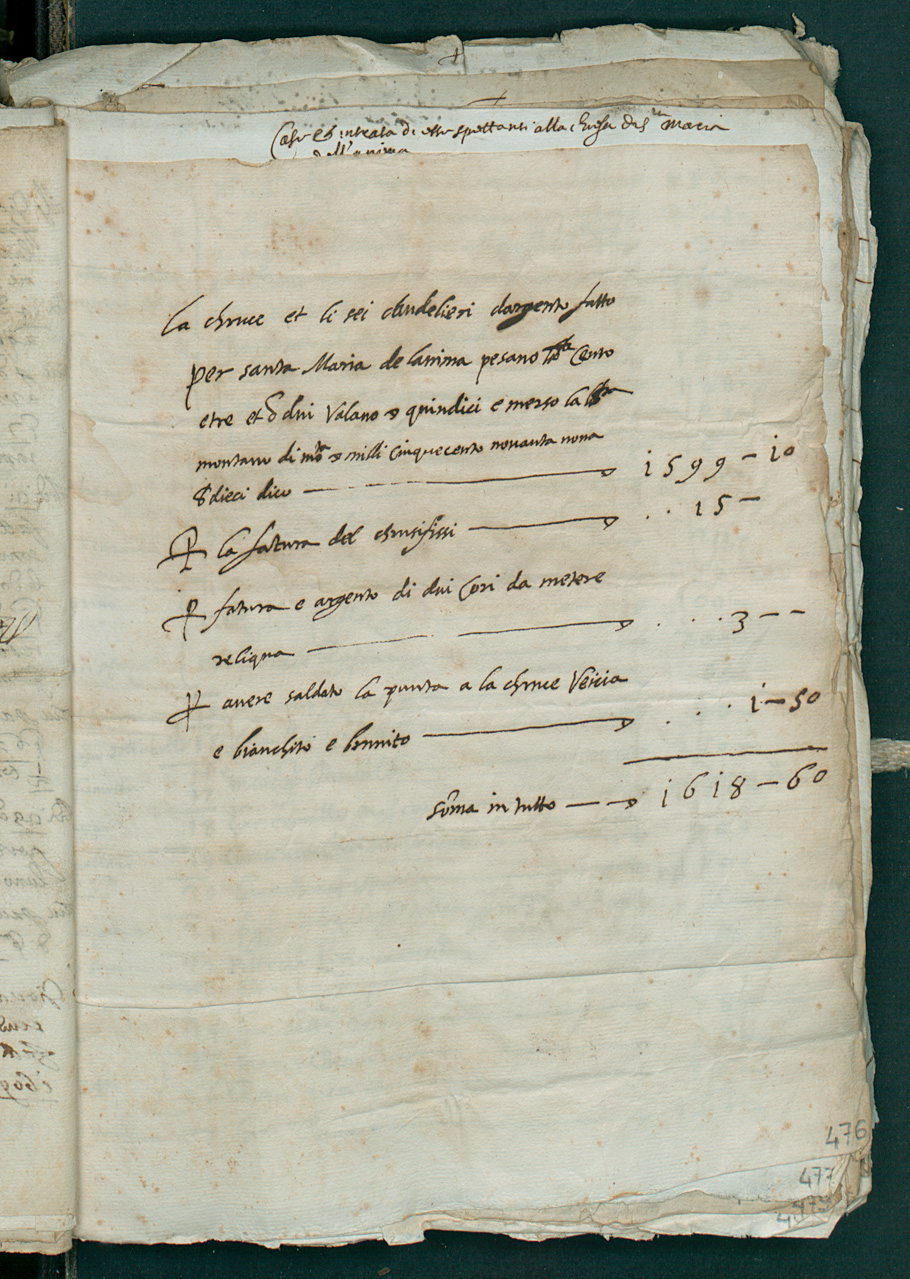 Case et intrata di esse spettanti alla chiesa di S.ta Maria
dell'anima
La chruce et li sei chndelieri dargento fatto
per santa Maria de lanima pesano lbre Cento
etre et dui Valano quindici e mezso la lbra
montano di mta milli cinquecento nouanta noua
dieci dico 1599 - 10
P la fatura del chrusifissi .. 15 -
P fatura e argento di dui Cori da metere
reliqua ... 3 - -
P auere saldato la punta a la chruce Vecia
e bianchito e brunito ... 1 - 50
soma in tutto 1618 - 60
476
477